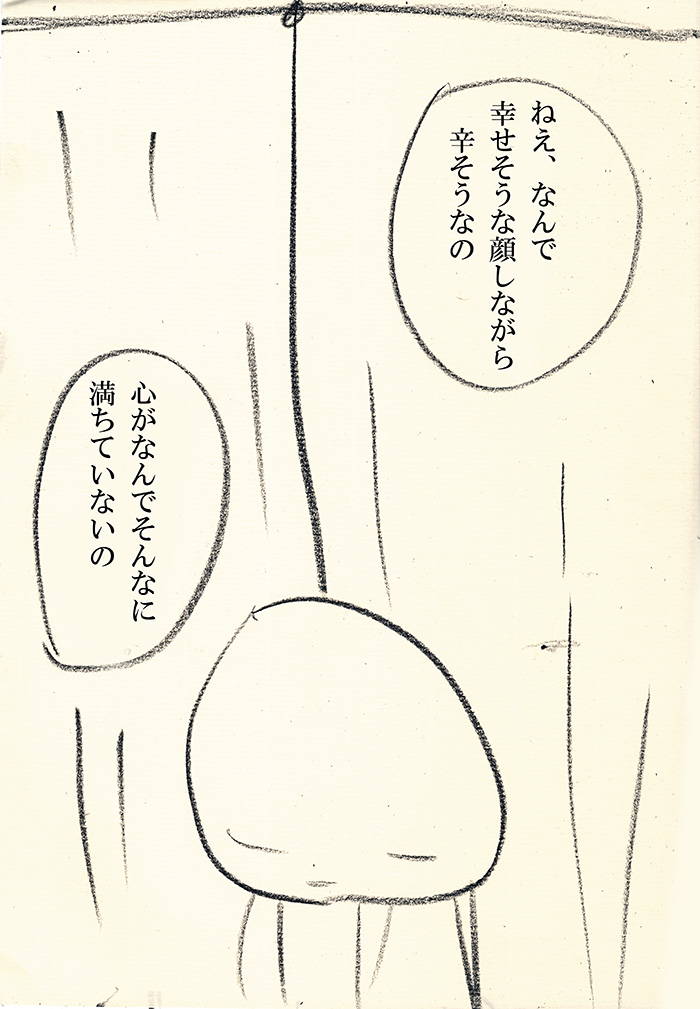 ねえ、なんで
幸せそうな顔しながら
辛そうなの
心がなんでそんなに
満ちていないの